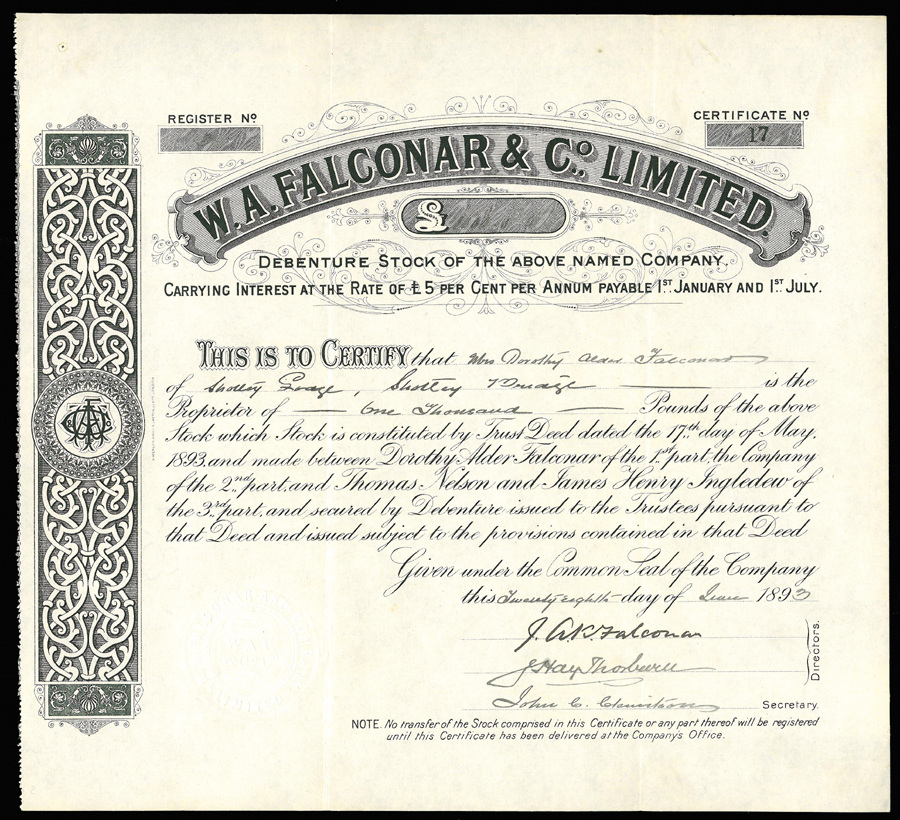 REGISTER Nº
CERTIFICATE Nº
17
W.A. FALCONAR & Cº., LIMITED.
£
DEBENTURE STOCK OF THE ABOVE NAMED COMPANY,
CARRYING INTEREST AT THE RATE OF £5 PER CENT PER ANNUM PAYABLE 1ST. JANUARY AND 1ST. JULY.
THIS IS TO CERTIFY that Mrs Dorothy Alder Falconar
of Shotley Lodge, Shotley Bridge is the
Proprietor of One Thousand Pounds of the above
Stock which Stock is constituted by Trust Deed dated the 17th. day of May,
1893. and made between Dorothy Alder Falconar of the 1st. part, the Company
of the 2nd. part, and Thomas Nelson and James Henry Ingledew of
the 3rd. part, and secured by Debenture issued to the Trustees pursuant to
that Deed and issued subject to the provisions contained in that Deed
Given under the Common Seal of the Company
this Twenty eighth day of June 1893
J. A. K. Falconar
J Hay Thorburn
Directors.
John C. Secretary.
NOTE. No transfer of the Stock comprised in this Certificate or any part thereof will be registered
until this Certificate has been delivered at the Company's Office.